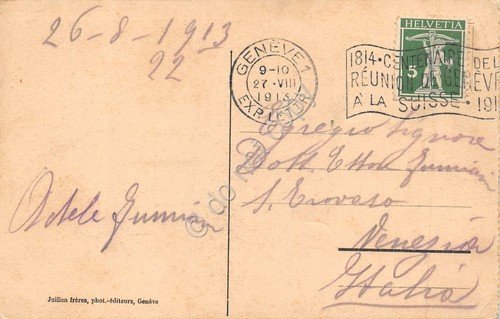 26-8-1913
22
GENÈVE 1
9-10
27·VIII
1913
EXP. LETTR.
HELVETIA
5
1814·CENTENAIRE DE L
RÉUNION DE GENÈV
À LA SUISSE·191
Egregio Signore
Dott. Ettore
S. Trovaso
Venezia
Italia
Adele
Jullien frères, phot.-éditeurs, Genève